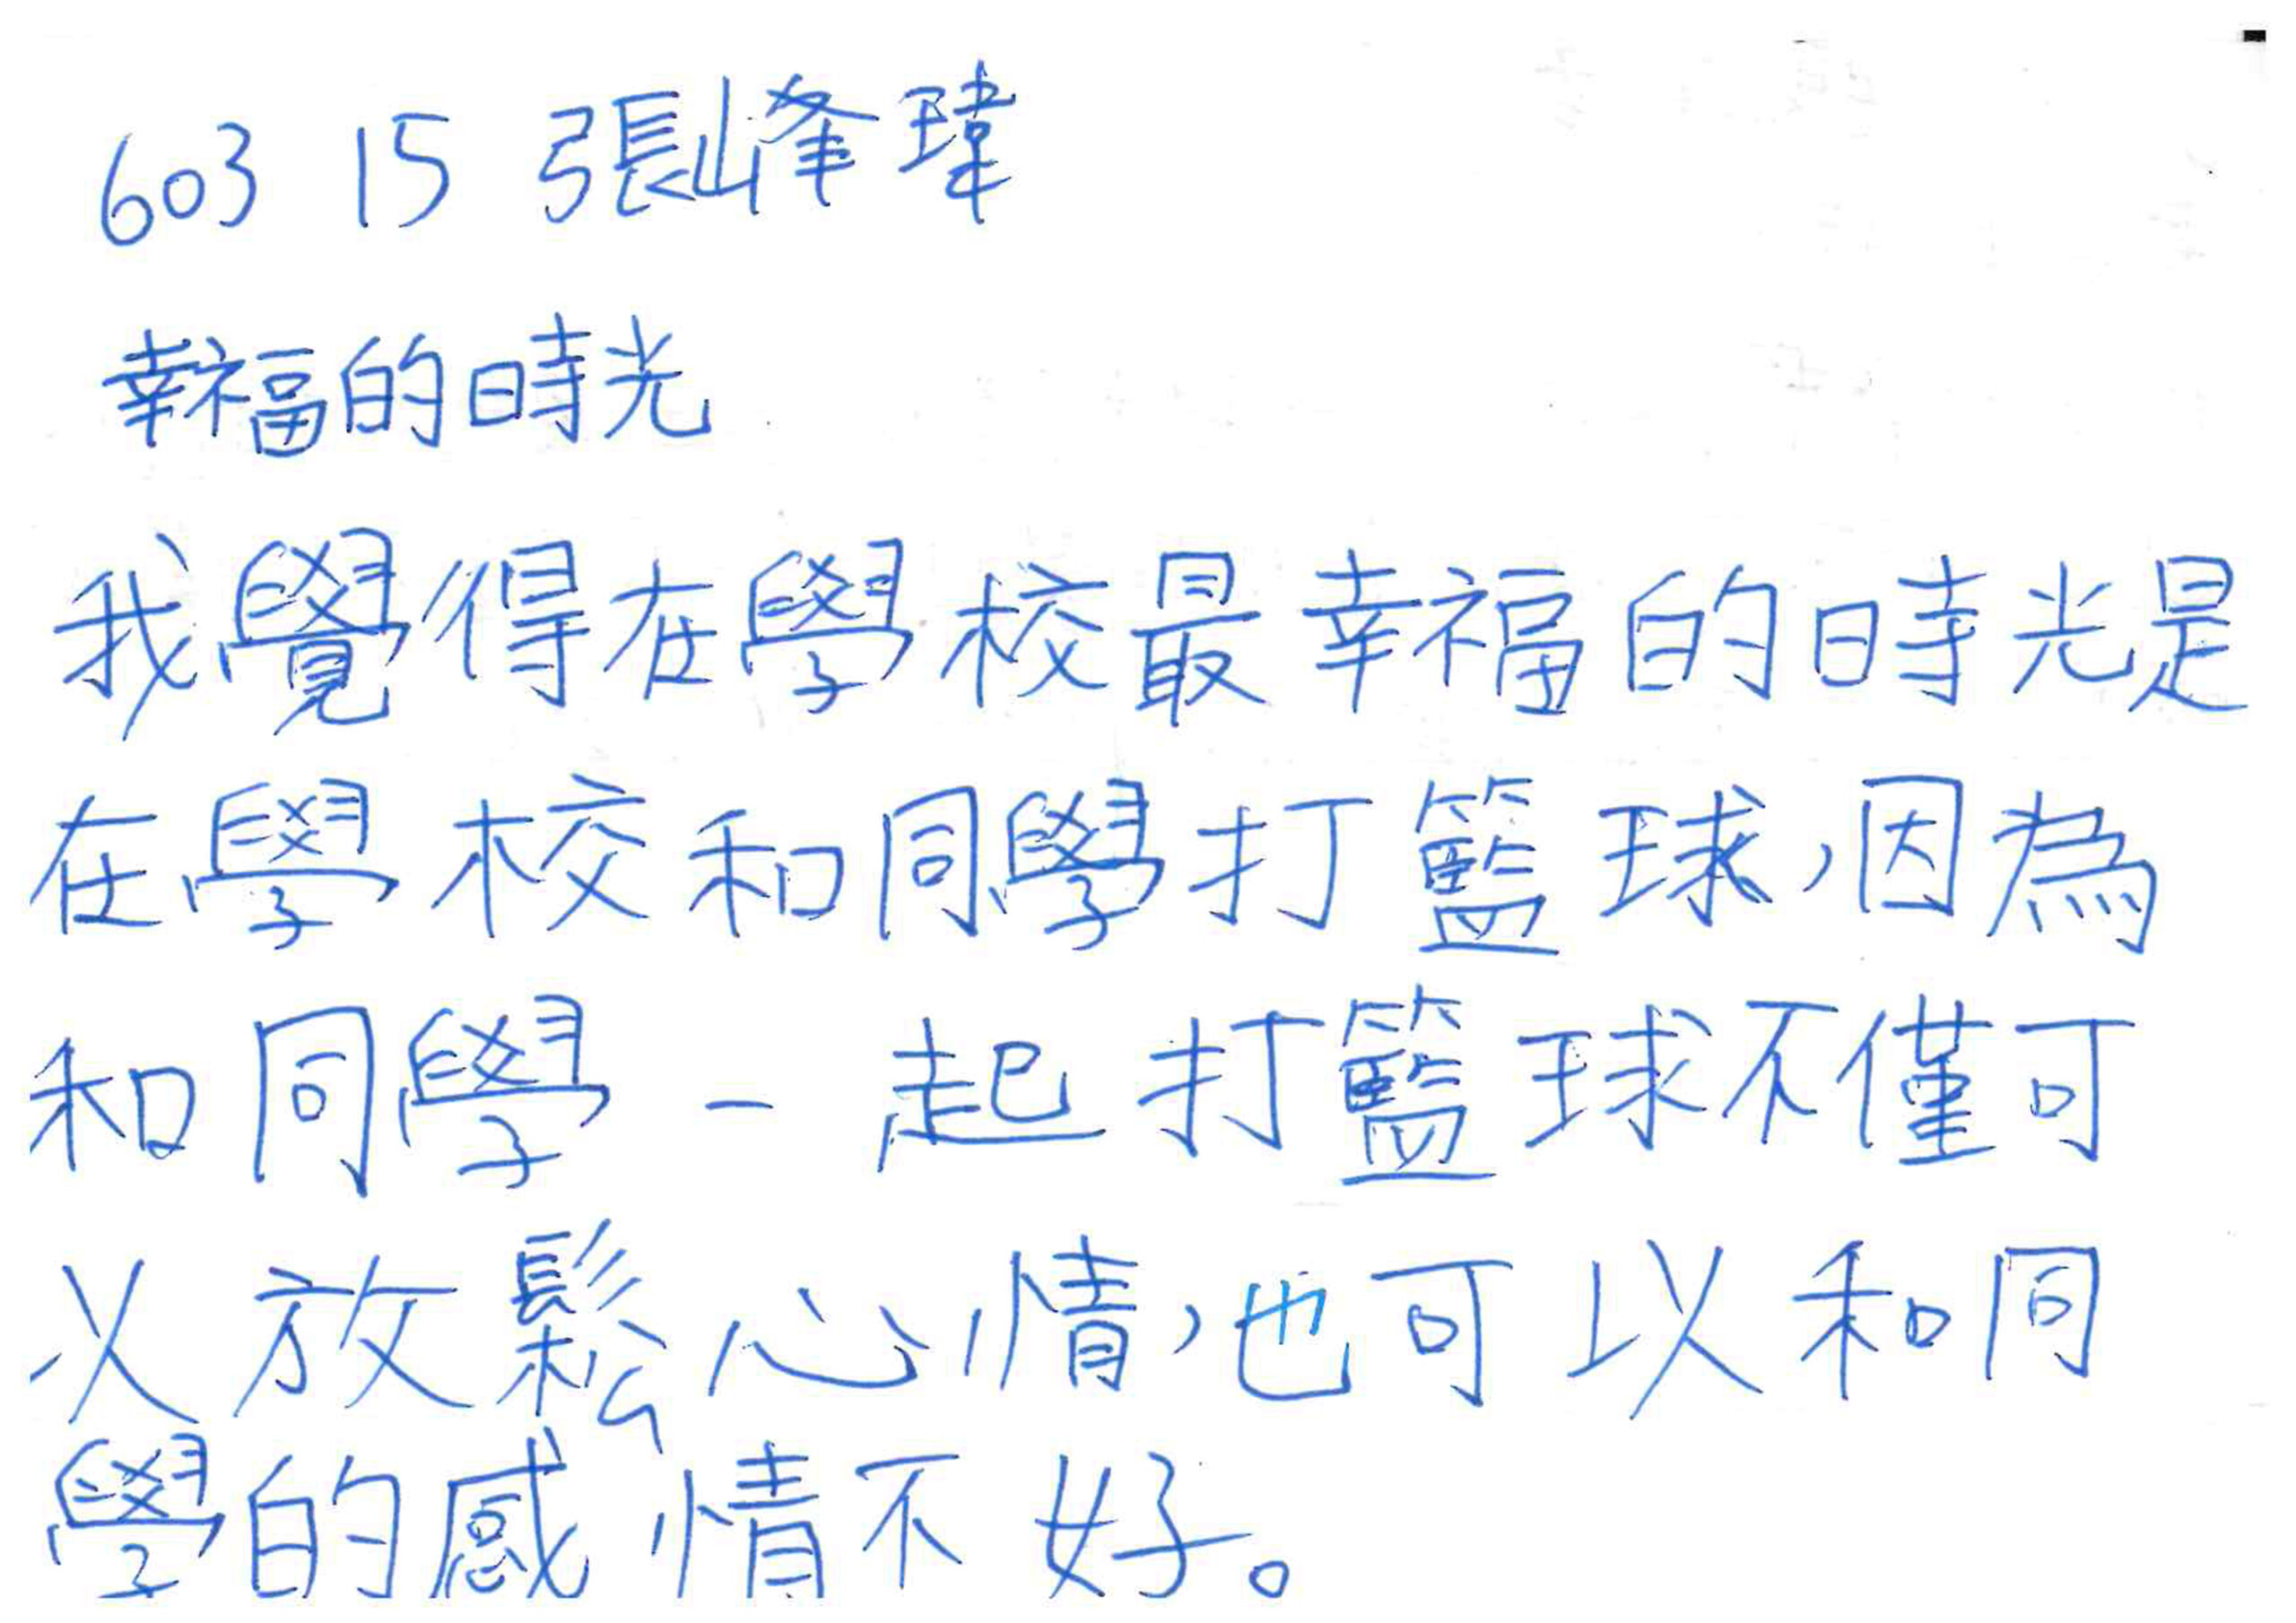 603 15 張峰瑋
幸福的時光
我覺得在學校最幸福的時光是
在學校和同學打籃球,因為
和同學一起打籃球不僅可
以放鬆心情,也可以和同
學的感情不好。